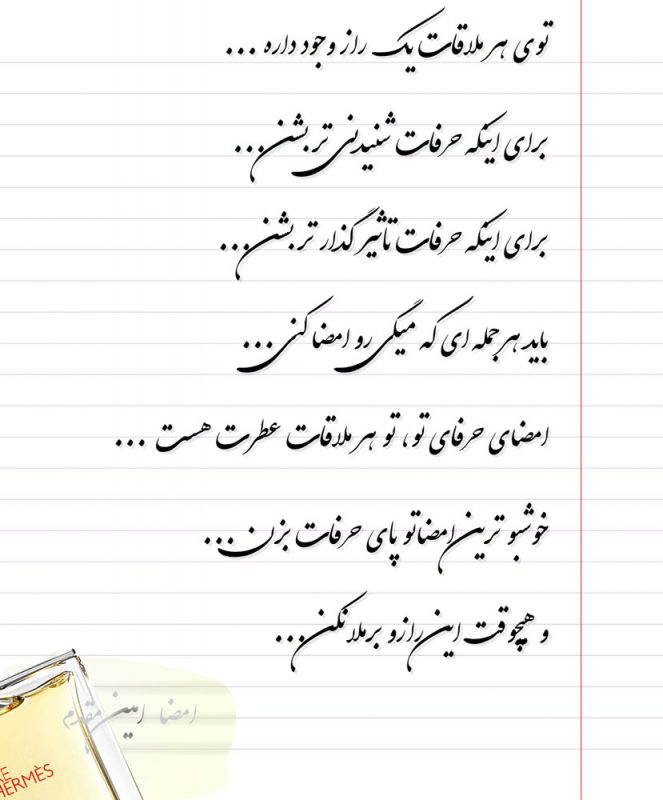 توی هر ملاقات یک راز وجود داره ...
برای اینکه حرفات شنیدنی تر بشن...
برای اینکه حرفات تاثیر گذار تر بشن...
باید هر جمله ای که میگی رو امضا کنی...
امضای حرفای تو ، تو هر ملاقات عطرت هست ...
خوشبو ترین امضاتو پای حرفات بزن...
و هیچوقت این رازو برملا نکن...
امضا امین مقدم
RE
HERMÈS